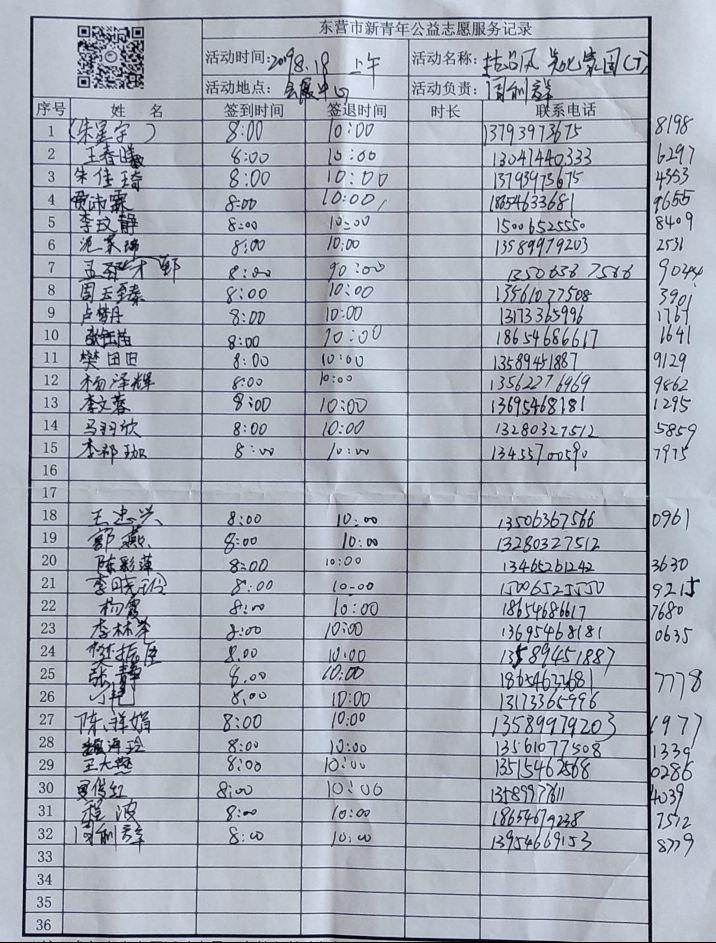 东营市新青年公益志愿服务记录
活动时间: 2019.8.18 上午 活动名称:
活动地点: 会展中心 活动负责: 周利群
序号 姓 名 签到时间 签退时间 时长 联系电话
1 (朱星宇) 8:00 10:00 13793973675 8198
2 王春曦 8:00 10:00 13047440333 6297
3 朱佳琦 8:00 10:00 13793973675 4353
4 贾沛霖 8:00 10:00 18654633681 9655
5 李玟静 8:00 10:00 15006525550 8409
6 8:00 10:00 13589979203 2531
7 8:00 10:00 13506367566 9044
8 周玉至臻 8:00 10:00 13561077508 3901
9 卢梦丹 8:00 10:00 13173365996 1767
10 8:00 10:00 18654686617 1641
11 樊田田 8:00 10:00 13589451887 9129
12 杨泽辉 8:00 10:00 13562276969 9862
13 李文蓉 8:00 10:00 13695468181 1295
14 马羽欣 8:00 10:00 13280327512 5859
15 李祁珈 8:00 10:00 13455700590 7975
16
17
18 王忠兴 8:00 10:00 13506367566 0961
19 郭燕 8:00 10:00 13280327512
20 陈彩萍 8:00 10:00 13465261242 3630
21 李晓玲 8:00 10:00 15006525550 9215
22 杨霞 8:00 10:00 18654686617 7680
23 李林苹 8:00 10:00 13695468181 0635
24 樊振臣 8:00 10:00 13589451887
25 张静 8:00 10:00 18654633681 7778
26 丁艳 8:00 10:00 13173365996
27 陈祥娟 8:00 10:00 13589979203 1977
28 魏海玲 8:00 10:00 13561077508 1339
29 王大燕 8:00 10:00 13515462568 0286
30 贾传红 8:00 10:00 13589977611 4039
31 程波 8:00 10:00 18654679238 7512
32 周利群 8:00 10:00 13954669153 8779
33
34
35
36